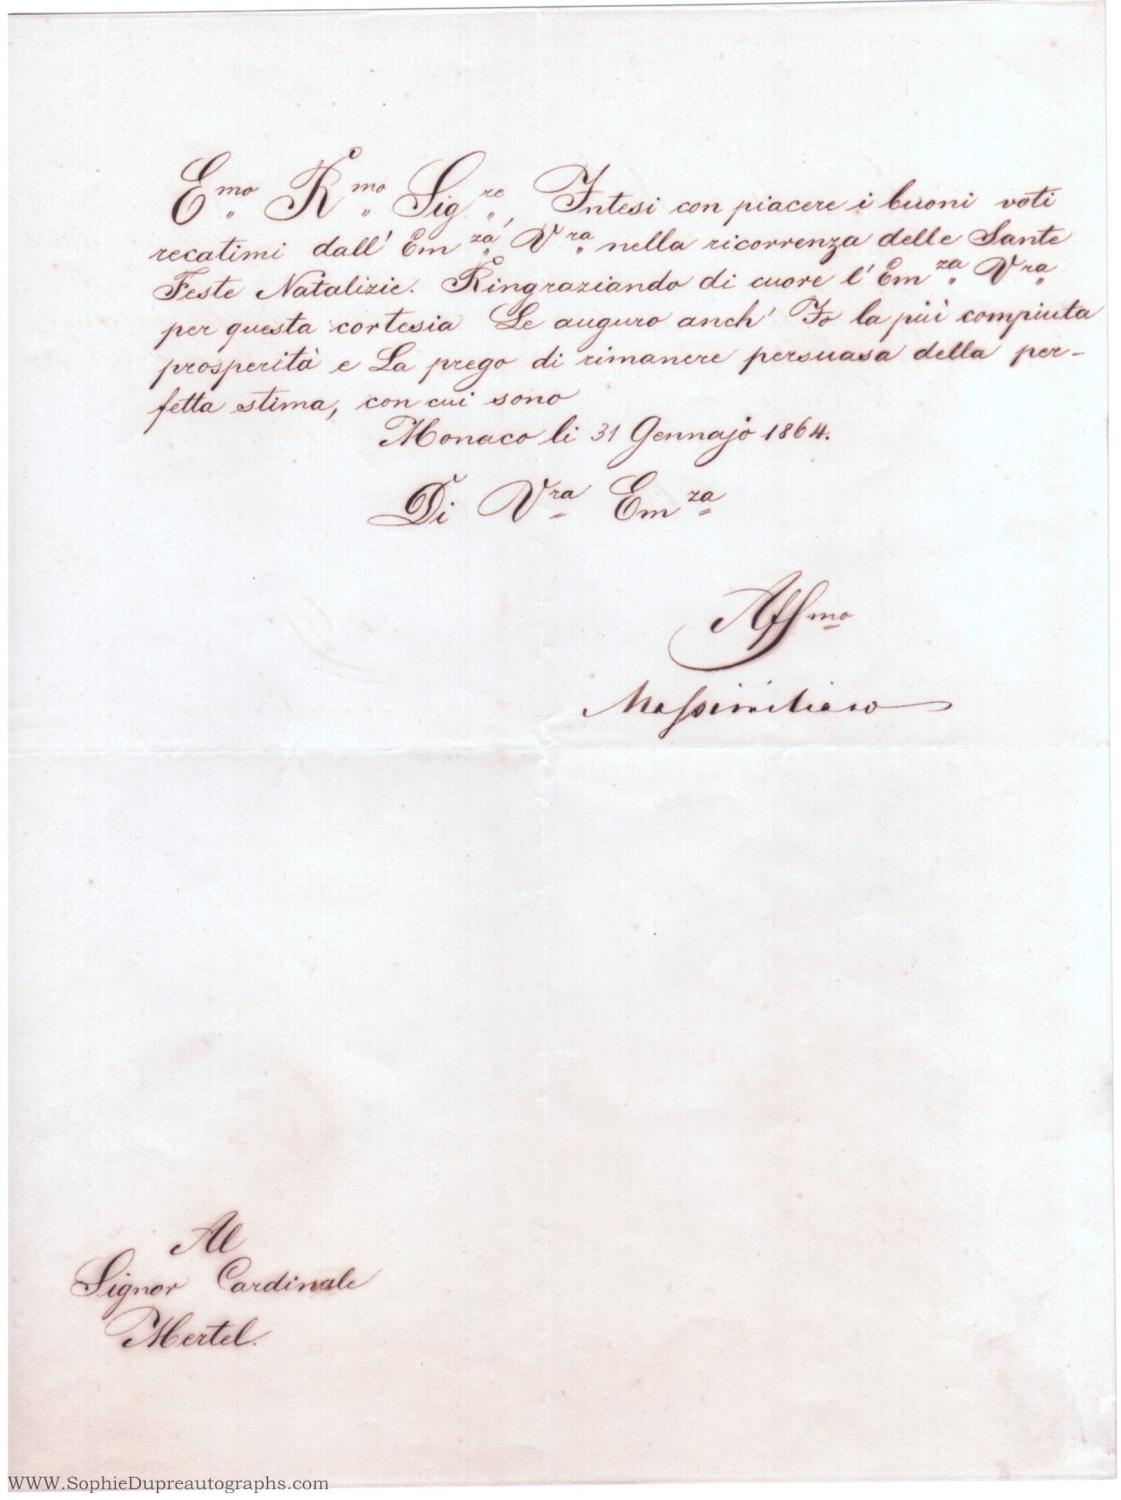 Emo Rmo Sigre, Intesi con piacere i buoni voti
recatimi dall' Emza Vra nella ricorrenza delle Sante
Feste Natalizie. Ringraziando di cuore l' Emza Vra
per questa cortesia Le auguro anch' Io la più compiuta
prosperità e La prego di rimanere persuasa della per-
fetta stima, con cui sono
Monaco li 31 Gennajo 1864.
Di Vra Emza
Affmo
Massimiliano
Al
Signor Cardinale
Mertel.
WWW.SophieDupreautographs.com